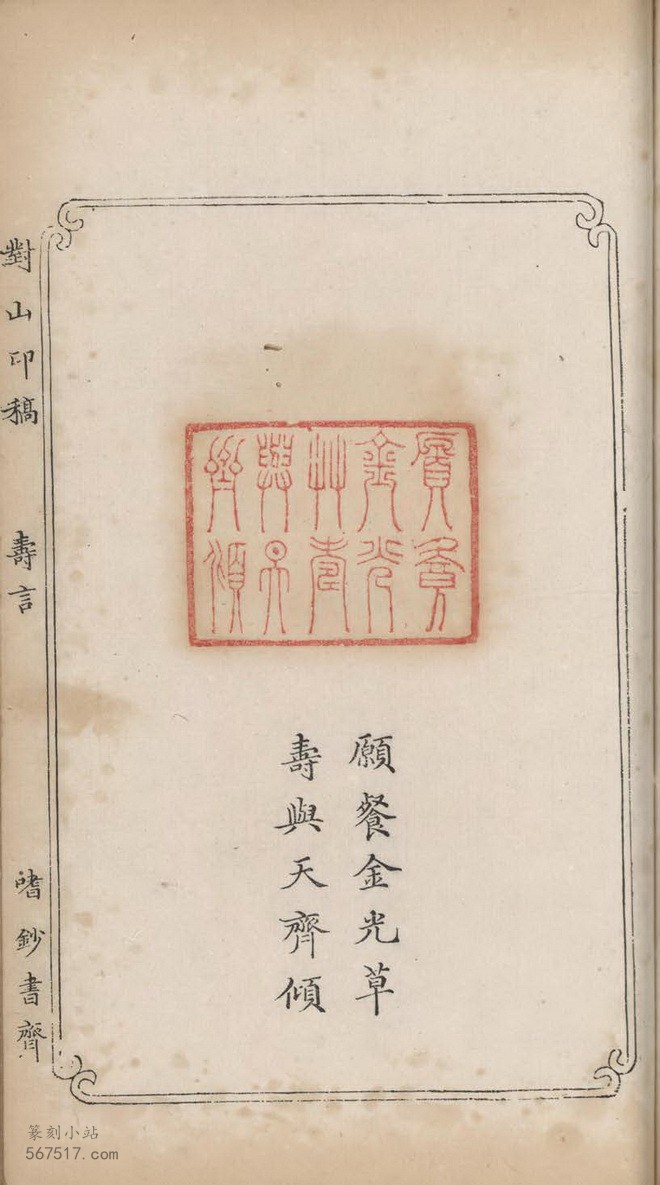 願餐金光草
壽與天齊傾
對山印稿 壽言 嗜鈔書齋
篆刻小站
567517.com